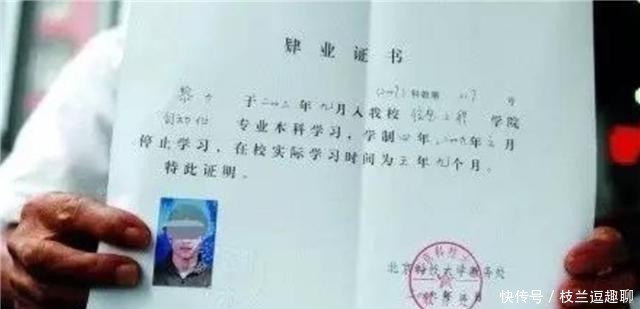 肄业证书
(2007)科教第 217 号
黎力 于二〇〇二年九月入我校信息工程学院
自动化 专业本科学习，学制四年，二〇〇六年六月
停止学习，在校实际学习时间为三年九个月。
特此证明。
北京科技大学教务处
快传号/枝兰逗趣聊